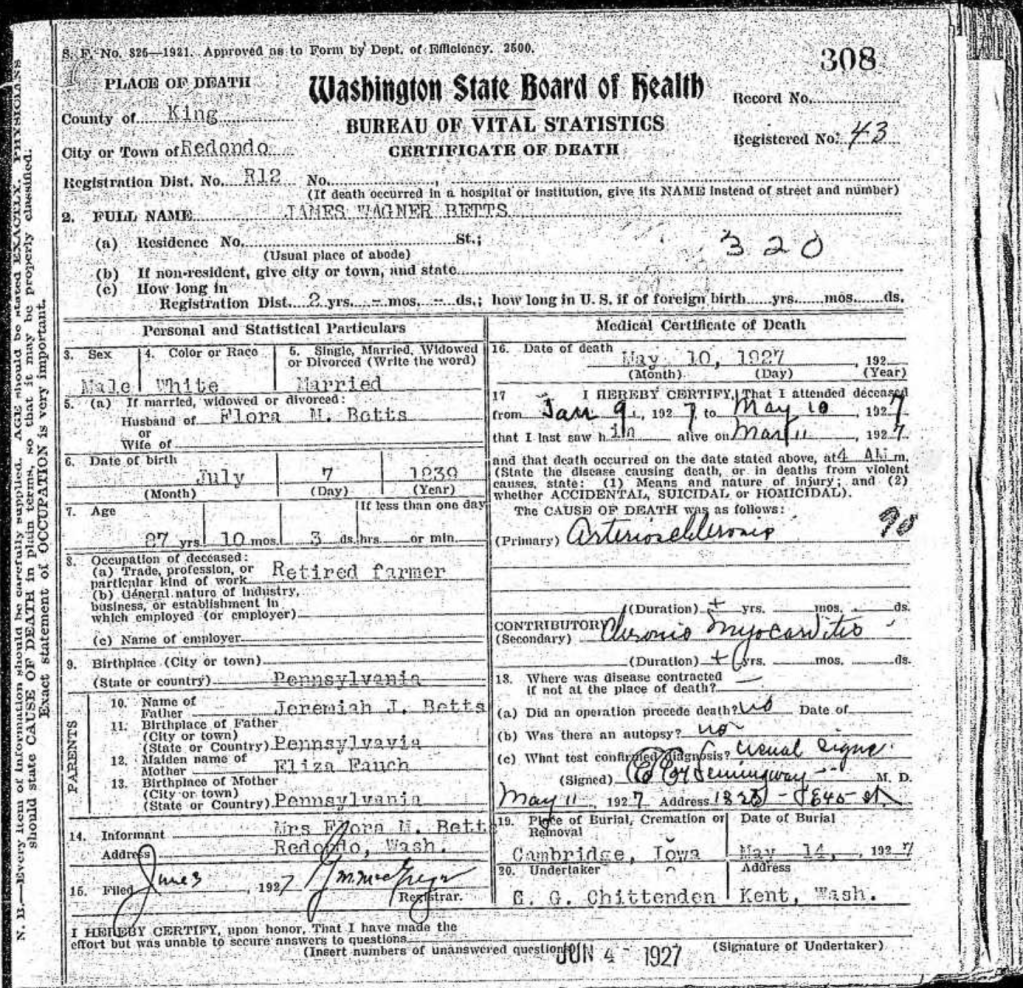 S. F. No. 325—1921. Approved as to Form by Dept. of Efficiency. 2500.
308
PLACE OF DEATH
Washington State Board of Health
County of King
Record No.
BUREAU OF VITAL STATISTICS
Registered No. 43
City or Town of Redondo
CERTIFICATE OF DEATH
Registration Dist. No. R12 No.
(If death occurred in a hospital or institution, give its NAME instead of street and number)
2. FULL NAME JAMES WAGNER BETTS
(a) Residence No. St.;
320
(Usual place of abode)
(b) If non-resident, give city or town, and state
(c) How long in
Registration Dist. 2 yrs. - mos. - ds.; how long in U. S. if of foreign birth yrs. mos. ds.
Personal and Statistical Particulars
3. Sex
4. Color or Race
5. Single, Married, Widowed
or Divorced (Write the word)
Male White Married
5. (a) If married, widowed or divorced:
Husband of Flora M. Betts
or
Wife of
6. Date of birth
July 7 1839
(Month) (Day) (Year)
7. Age
If less than one day
87 yrs 10 mos. 3 ds. hrs. or min.
8. Occupation of deceased:
(a) Trade, profession, or
particular kind of work Retired farmer
(b) General nature of Industry,
business, or establishment in
which employed (or employer)
(c) Name of employer
9. Birthplace (City or town)
(State or country) Pennsylvania
PARENTS
10. Name of
Father Jeremiah J. Betts
11. Birthplace of Father
(City or town)
(State or Country) Pennsylvavia
12. Maiden name of
Mother Eliza Fauch
13. Birthplace of Mother
(City or town)
(State or Country) Pennsylvania
14. Informant Mrs Flora M. Bett
Address Redondo, Wash.
15. Filed June 3, 1927
Registrar.
I HEREBY CERTIFY, upon honor, That I have made the
effort but was unable to secure answers to questions
(Insert numbers of unanswered questions)
JUN 4 - 1927
(Signature of Undertaker)
Medical Certificate of Death
16. Date of death
May 10, 1927, 192
(Month) (Day) (Year)
17 I HEREBY CERTIFY, That I attended deceased
from Jan 9, 1927 to May 10, 1927
that I last saw him alive on May 11, 1927
and that death occurred on the date stated above, at 4 AM m.
(State the disease causing death, or in deaths from violent
causes, state: (1) Means and nature of injury; and (2)
whether ACCIDENTAL, SUICIDAL or HOMICIDAL).
The CAUSE OF DEATH was as follows:
(Primary) Arteriosclerosis 90
(Duration) + yrs. mos. ds.
CONTRIBUTORY
(Secondary) Chronic Myocarditis
(Duration) + yrs. mos. ds.
18. Where was disease contracted
if not at the place of death? —
(a) Did an operation precede death? no Date of
(b) Was there an autopsy? no
(c) What test confirmed diagnosis? usual signs
(Signed) Hemingway M. D.
May 11, 1927 Address
19. Place of Burial, Cremation or
Removal
Date of Burial
Cambridge, Iowa May 14, 1927
20. Undertaker
Address
E. G. Chittenden Kent, Wash.
N. B.—Every item of information should be carefully supplied. AGE should be stated EXACTLY. PHYSICIANS
should state CAUSE OF DEATH in plain terms, so that it may be properly classified.
Exact statement of OCCUPATION is very important.